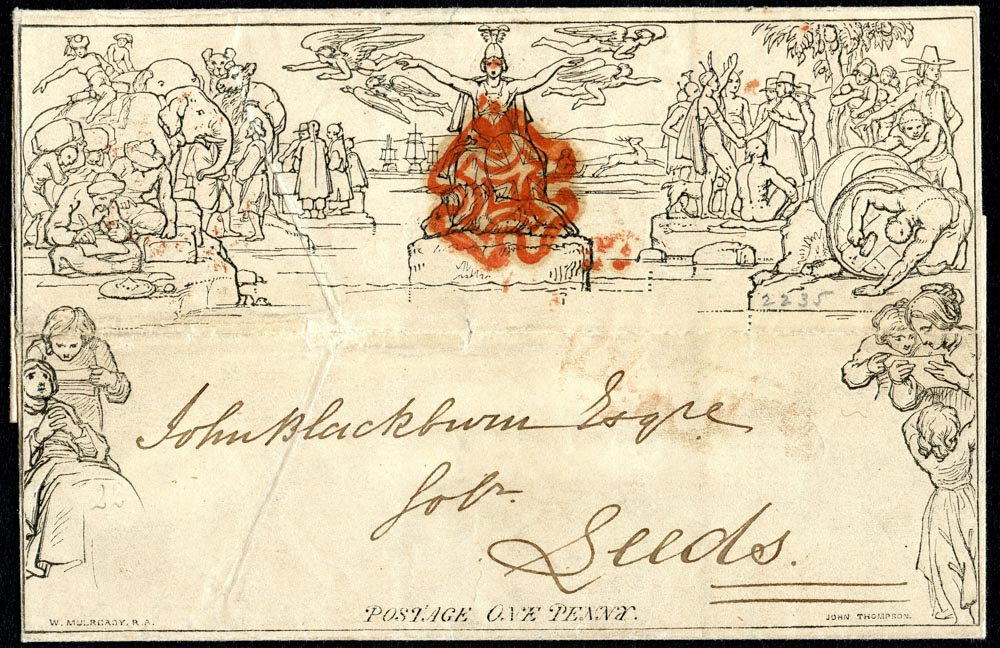 2235
John Blackburn Esqre
Solr.
Leeds.
POSTAGE ONE PENNY.
W. MULREADY. R.A.
JOHN THOMPSON.